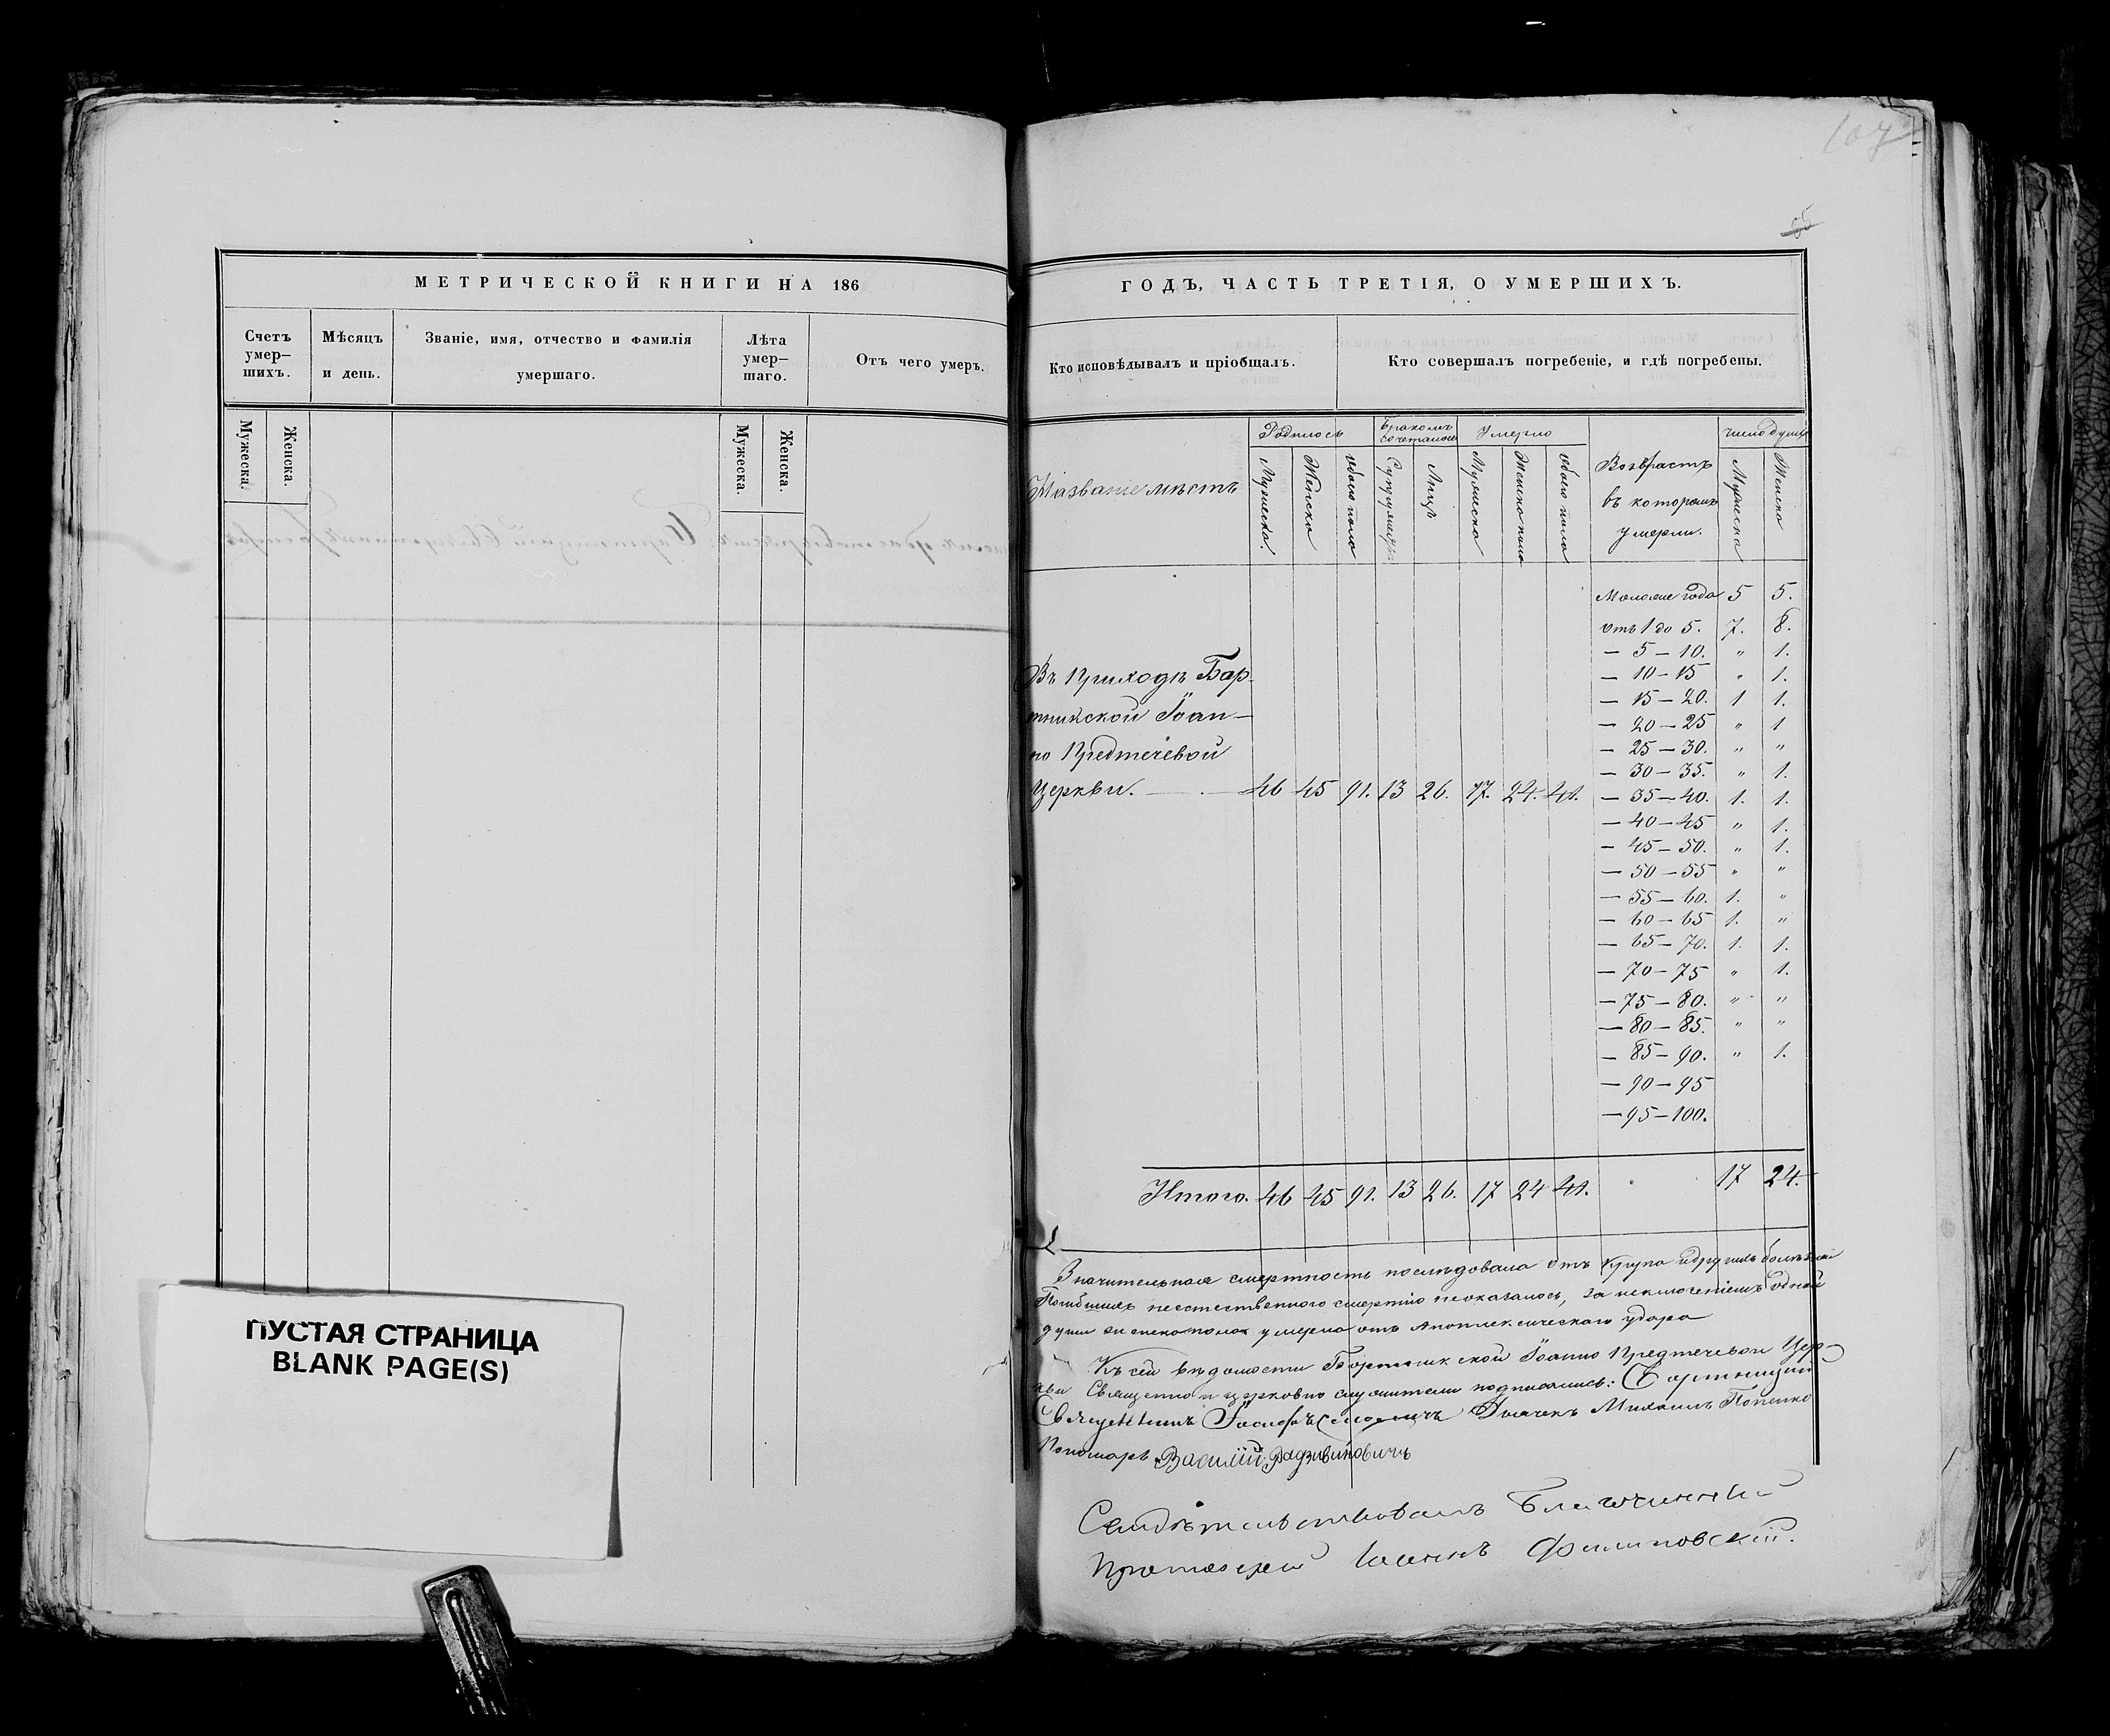 107
МЕТРИЧЕСКОЙ КНИГИ НА 186
Счетъ умер–шихъ.
Мѣсяцъ и день.
Званіе, имя, отчество и фамилія умершаго.
Лѣта умер–шаго.
Отъ чего умеръ.
Мужеска.
Женска.
Мужеска.
Женска.
ПУСТАЯ СТРАНИЦА
BLANK PAGE(S)
ГОДЪ, ЧАСТЬ ТРЕТІЯ, О УМЕРШИХЪ.
Кто исповѣдывалъ и пріобщалъ.
Кто совершалъ погребеніе, и гдѣ погребены.
Названіе мѣстъ
Родилось
Мужеска.
Женска
обоего пола
Бракомъ сочеталось
Супружествъ
Лицъ
Умерло
Мужеска
Женска пола
обоего пола
Возврастъ въ которомъ умерли.
Число душъ
Мужеска
Женска
Моложе года 5 5.
отъ 1 до 5. 7. 8.
— 5 — 10. „ 1.
— 10 — 15 „ 1.
— 15 — 20. 1 1.
— 20 — 25 „ 1
— 25 — 30. „ „
— 30 — 35. „ 1.
— 35 — 40. 1. 1.
— 40 — 45 „ 1.
— 45 — 50. „ 1.
— 50 — 55 „ „
— 55 — 60. 1. „
— 60 — 65 1. „
— 65 — 70. 1. 1.
— 70 — 75 „ 1.
— 75 — 80. „ „
— 80 — 85. „ „
— 85 — 90. „ 1.
— 90 — 95
— 95 — 100.
Въ Приходѣ Бор-
тникской Іоан—
но Предтечевой
Церкви. — 46 45 91. 13 26. 17. 24. 41.
Итого. 46 45 91. 13 26. 17 24 41. 17 24.
Значительная смертность послѣдовала отъ Крупа и другихъ болѣзней
Погибшихъ неестественною смертію неоказалось, за исключеніемъ одной
души женска пола умерла отъ Апоплексическаго удара
Къ сей вѣдомости Бортникской Іоанно Предтечевой Цер-
кви Священно и церковно служители подписались:
Священникъ Іосифъ Дьячекъ Михаилъ Попенко
Пономарь Василій Радзивиновичъ
Свидѣтельствовалъ Благочинный
Протоіерей Іоаннъ Филиповскій.